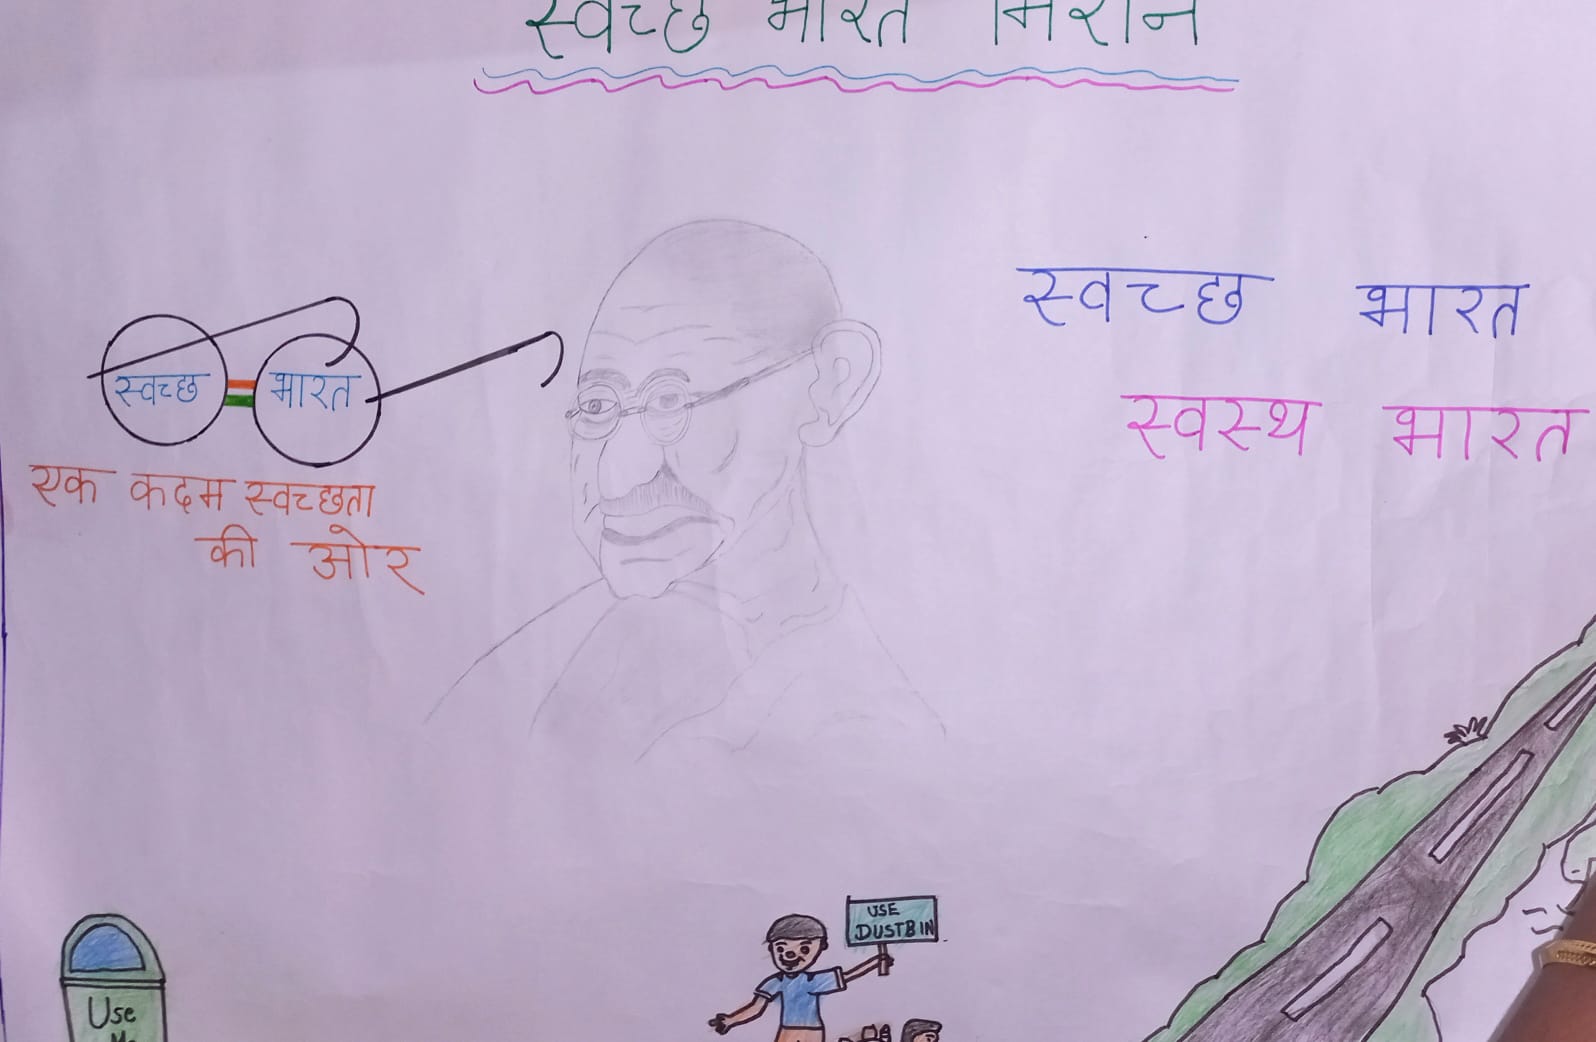 स्वच्छ भारत मिशन
स्वच्छ भारत
एक कदम स्वच्छता
की ओर
स्वच्छ भारत
स्वस्थ भारत
USE
DUSTBIN
Use
Me